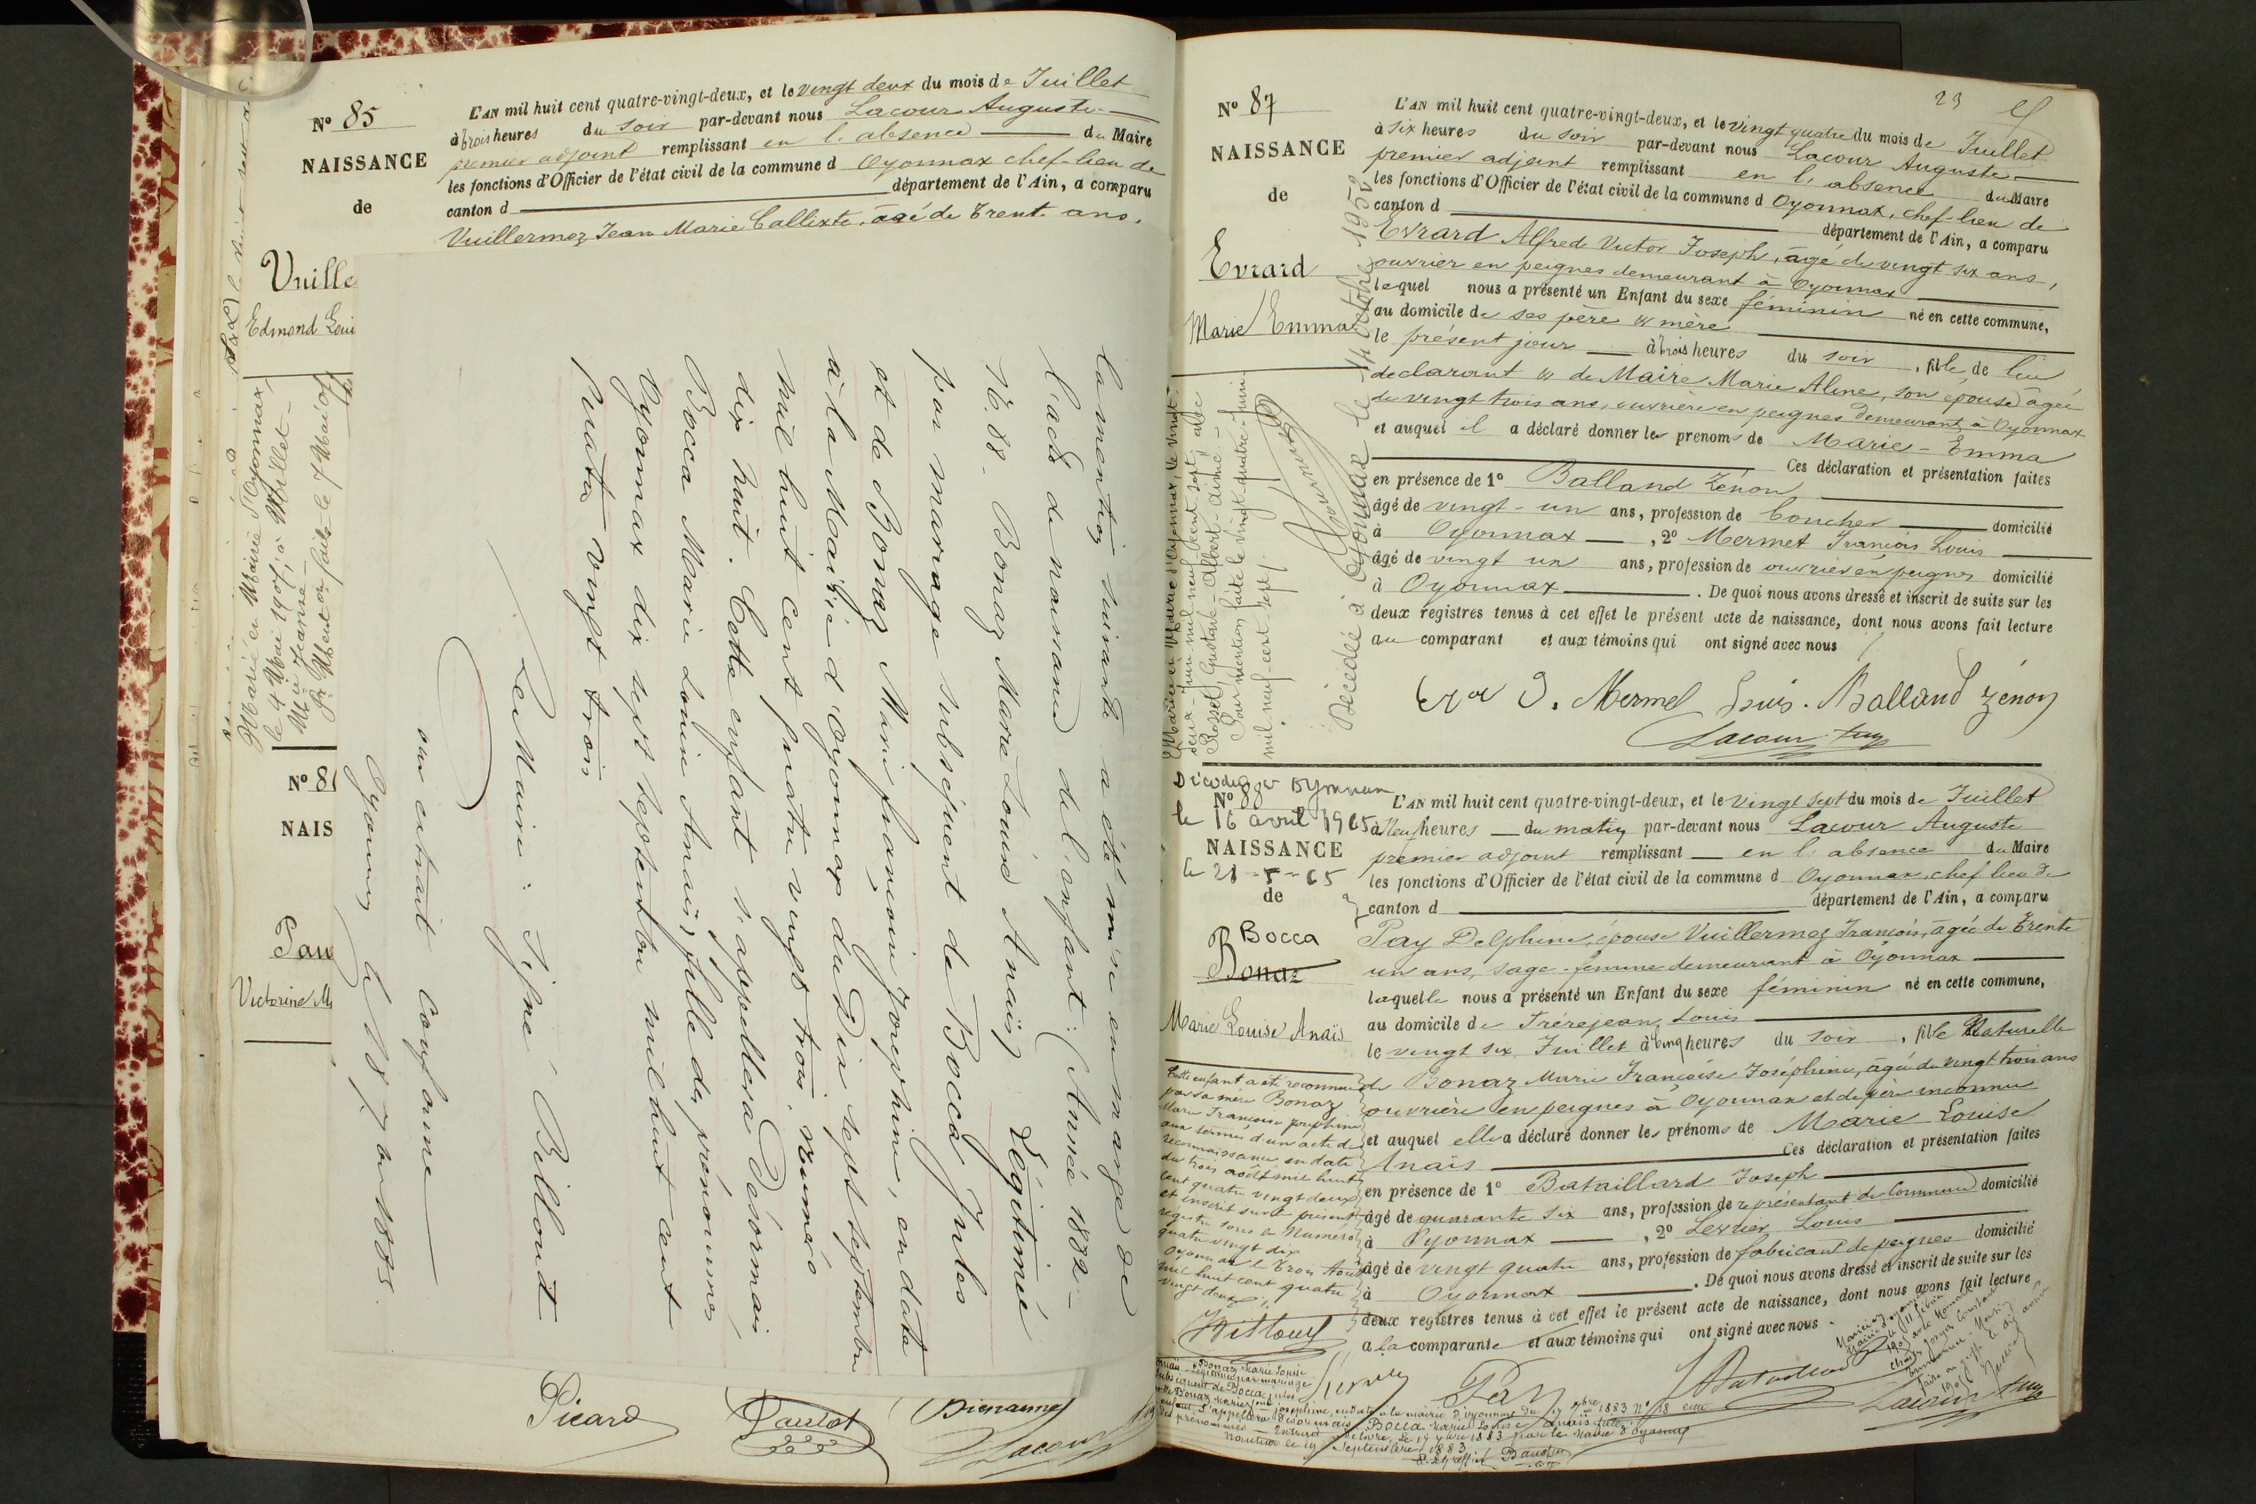 N° 85
NAISSANCE
de
Vuille
Edmond Loui
L'AN mil huit cent quatre-vingt-deux, et le vingt deux du mois de Juillet
à trois heures du soir par-devant nous Lacour Auguste
premier adjoint remplissant en l'absence du Maire
les fonctions d'Officier de l'état civil de la commune d Oyonnax chef-lieu de
canton d département de l'Ain, a comparu
Vuillermoz Jean Marie Callixte, âgé de Trente ans,
Marié en Mairie d'Oyonnax,
le 4 Mai 1907, à Millet
Méa Jeanne
faite le 7 Mai 07
N° 8
NAIS
Pau
Victorine M
la mention suivante a été mise en marge de
l'acte de naissance de l'enfant : (Année 1882 -
N° 88 - Bonaz Marie Louise Anaïs) Légitimé
par mariage subséquent de Bocca Jules
et de Bonaz Marie françoise Joséphine, en date
à la Mairie d'Oyonnax du Dix sept septembre
mil huit cent quatre vingt trois, numéro
dix huit. Cette enfant s'appellera Désormais
Bocca Marie Louise Anaïs, fille des prénommés
Oyonnax dix sept septembre mil huit cent
quatre vingt trois
Le Maire : Signé : Billout
our extrait Conforme
Oyonnax le 18 7bre 1883.
Picard
Paulot
Bienaimé
Lacour
23
N° 87
NAISSANCE
de
Evrard
Marie Emma
L'AN mil huit cent quatre-vingt-deux, et le vingt quatre du mois de Juillet
à six heures du soir par-devant nous Lacour Auguste
premier adjoint remplissant en l'absence du Maire
les fonctions d'Officier de l'état civil de la commune d Oyonnax, chef-lieu de
canton d département de l'Ain, a comparu
Evrard Alfred Victor Joseph, âgé de vingt six ans,
ouvrier en peignes demeurant à Oyonnax
lequel nous a présenté un Enfant du sexe féminin né en cette commune,
au domicile de ses père et mère
le présent jour à trois heures du soir, fille de lui
déclarant et de Maire Marie Aline, son épouse âgée
de vingt trois ans, ouvrière en peignes demeurant à Oyonnax
et auquel il a déclaré donner les prénoms de Marie - Emma
Ces déclaration et présentation faites
en présence de 1° Balland Zénon
âgé de vingt-un ans, profession de boucher domicilié
à Oyonnax, 2° Mermet François Louis
âgé de vingt un ans, profession de ouvrier en peignes domicilié
à Oyonnax. De quoi nous avons dressé et inscrit de suite sur les
deux registres tenus à cet effet le présent acte de naissance, dont nous avons fait lecture
au comparant et aux témoins qui ont signé avec nous
Mermet Louis. Balland Zénon
Lacour
Mariée en Mairie d'Oyonnax, le vingt-
deux-juin mil neuf cent sept, avec
Rossel Gustave-Albert-Aimé -
Pour mention faite le vingt-quatre-juin-
mil-neuf-cent-sept.
Décédée à Oyonnax le octobre 1958
Décédée à Oyonnax
le 16 avril 1965
N° 88
NAISSANCE
le 21-5-65
de
Bocca
Bonaz
Marie Louise Anaïs
L'AN mil huit cent quatre-vingt-deux, et le vingt sept du mois de Juillet
à neuf heures du matin par-devant nous Lacour Auguste
premier adjoint remplissant en l'absence du Maire
les fonctions d'Officier de l'état civil de la commune d Oyonnax, chef lieu de
canton d département de l'Ain, a comparu
Pay Delphine, épouse Vuillermoz François, âgée de trente
un ans, sage-femme demeurant à Oyonnax
laquelle nous a présenté un Enfant du sexe féminin né en cette commune,
au domicile de Frérejean Louis
le vingt six Juillet à cinq heures du soir, fille Naturelle
de Bonaz Marie Françoise Joséphine, âgée de vingt trois ans
ouvrière en peignes à Oyonnax et de père inconnu
et auquel elle a déclaré donner les prénoms de Marie Louise
Anaïs Ces déclaration et présentation faites
en présence de 1° Bataillard Joseph
âgé de quarante six ans, profession de représentant de Commerce domicilié
à Oyonnax, 2° Levrier Louis
âgé de vingt quatre ans, profession de fabricant de peignes domicilié
à Oyonnax. De quoi nous avons dressé et inscrit de suite sur les
deux registres tenus à cet effet le présent acte de naissance, dont nous avons fait lecture
a la comparante et aux témoins qui ont signé avec nous.
Cette enfant a été reconnue
par sa mère Bonaz
Marie Françoise Joséphine
aux termes d'un acte de
reconnaissance en date
du trois août mil huit
cent quatre vingt deux
et inscrit sur le présent
registre sous le Numéro
quatre vingt dix
Oyonnax le trois Août
mil huit cent quatre
vingt deux
Billout
Pay
Lacour
Bonaz Marie Louise
légitimé par mariage
subséquent de Bocca Jules
et de Bonaz Marie Joséphine, en date à la mairie d'Oyonnax du 17 7bre 1883 N° 18 cette
enfant s'appellera désormais Bocca Marie Louise Anaïs fille
des prénommés le 17 7bre 1883 par le Maire d'Oyonnax
Nantua le 19 Septembre 1883